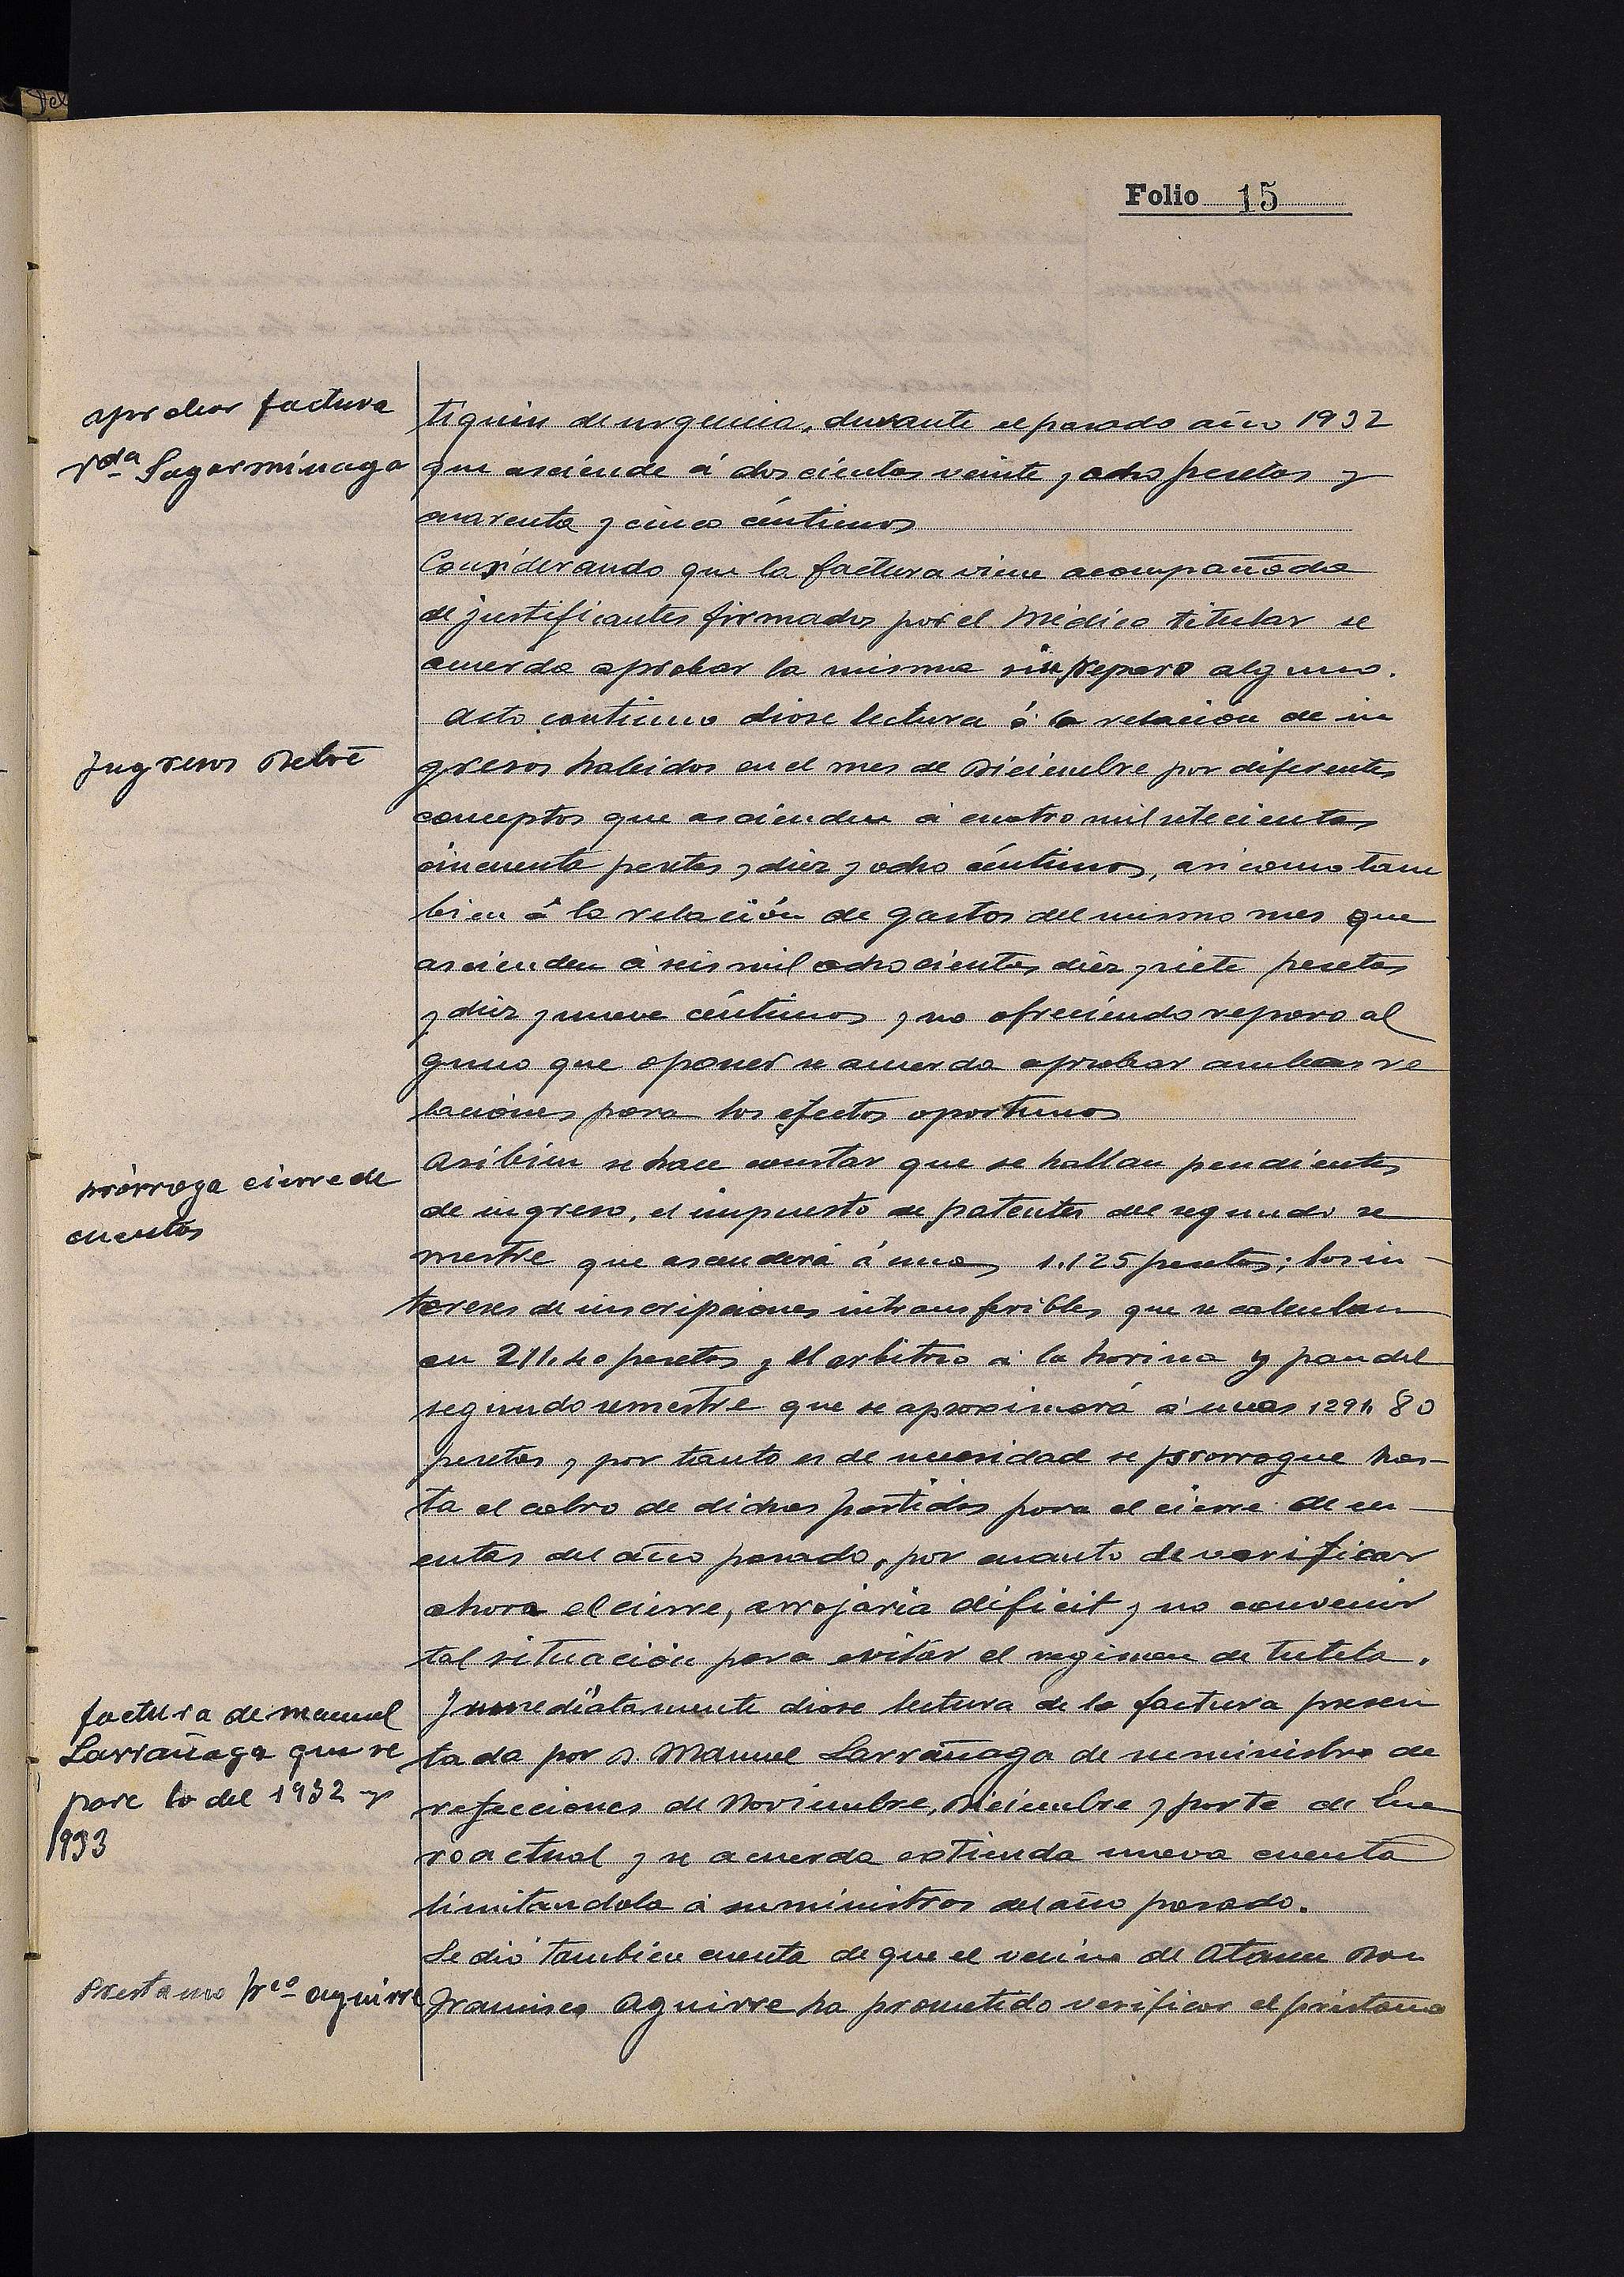 Folio 15
aprobar factura
Vda Sagarminaga
tiquin de urgencia, durante el pasado año 1932
que asciende á doscientas veinte y ocho pesetas y
cuarenta y cinco céntimos
Considerando que la factura viene acompañada
de justificantes firmados por el Médico titular se
acuerda aprobar la misma sin reparo alguno.
Acto continuo diose lectura á la relación de in
Ingresos Dcbre
gresos habidos en el mes de Diciembre por diferentes
conceptos que ascienden á cuatro mil setecientas
cincuenta pesetas y diez y ocho céntimos, asi como tam
bien á la relación de gastos del mismo mes que
ascienden á seis mil ochocientas diez y siete pesetas
y diez y nueve céntimos y no ofreciendo reparo al
guno que oponer se acuerda aprobar ambas re
laciones para los efectos oportunos
Prórroga cierre de
cuentas
Asibien se hace constar que se hallan pendientes
de ingreso, el impuesto de patentes del segundo se
mestre que ascenderá á unas 1.125 pesetas; los in-
tereses de inscripciones intransferibles que se calculan
en 211.40 pesetas y el arbitrio á la harina y pan del
segundo semestre que se aproximará á unas 1291, 80
pesetas y por tanto es de necesidad se prorrogue has-
ta el cobro de dichas partidas para el cierre de cu-
entas del año pasado, por cuanto de verificar
ahora el cierre, arrojaria déficit y no convenir
tal situación para evitar el regimen de tutela.
factura de Manuel
Larrañaga que se
pare lo del 1932 y
1933
Inmediatamente diose lectura de la factura presen
tada por D. Manuel Larrañaga de suministro de
refecciones de Noviembre, Diciembre y parte de Ene
ro actual y se acuerda extienda nueva cuenta
limitandola á suministros del año pasado.
Se dió tambien cuenta de que el vecino de Ataun Don
Prestamo Fco Aguirre
Francisco Aguirre ha prometido verificar el préstamo